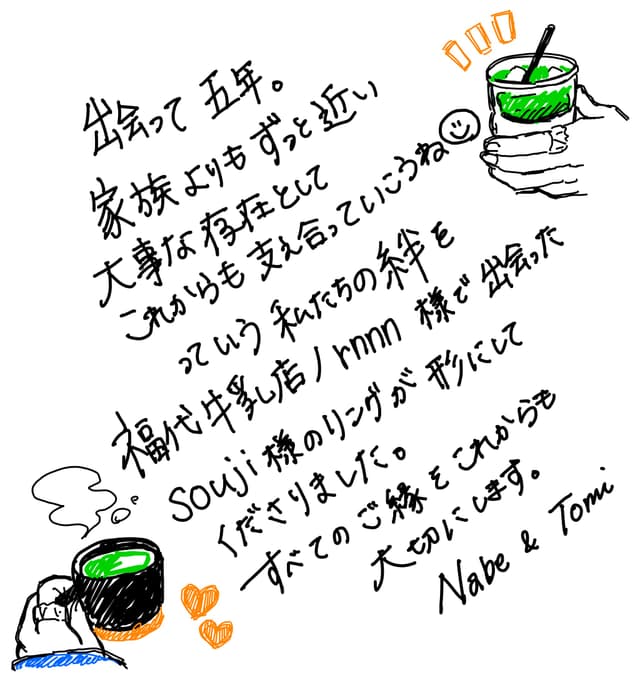 出会って五年。
家族よりもずっと近い
大事な存在として
これからも支え合っていこうね
っていう私たちの絆を
福代牛乳店/rnnn様で出会った
souji様のリングが形にして
くださりました。
すべてのご縁をこれからも
大切にします。
Nabe & Tomi